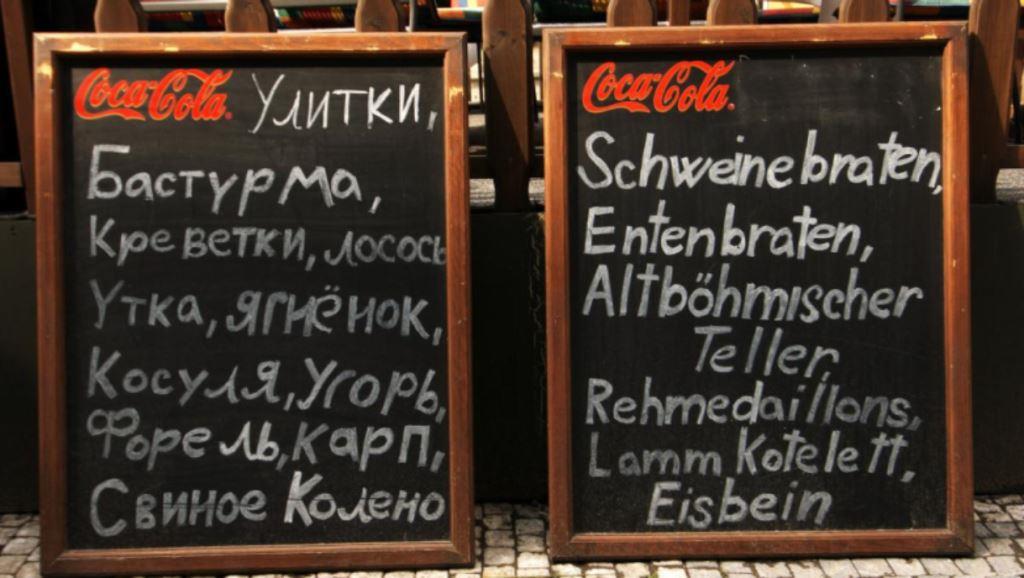 Coca-Cola. Улитки,
Бастурма,
Креветки, лосось
Утка, ягнёнок,
Косуля, Угорь,
Форель, карп,
Свиное Колено
Coca-Cola.
Schweinebraten,
Entenbraten,
Altböhmischer
Teller,
Rehmedaillons,
Lamm Kotelett,
Eisbein